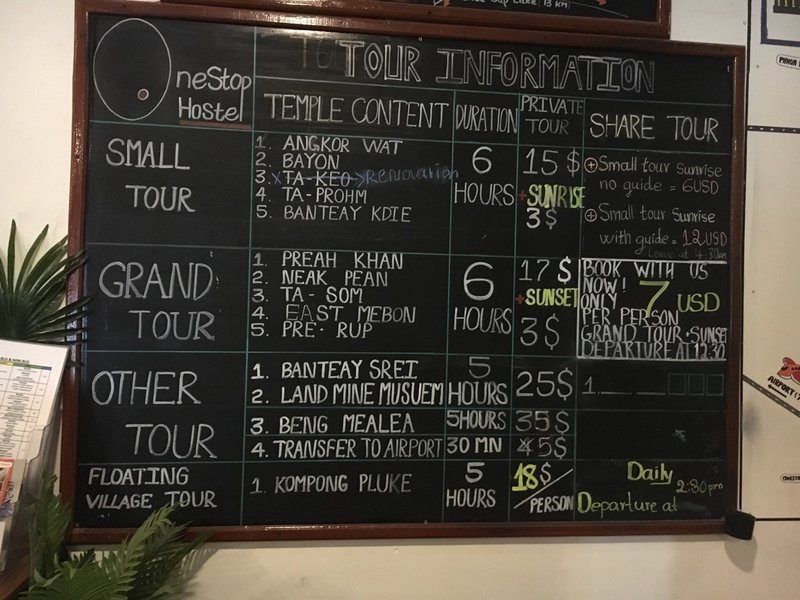 TOUR INFORMATION
OneStop
Hostel
TEMPLE CONTENT
DURATION
PRIVATE
TOUR
SHARE TOUR
SMALL
TOUR
1. ANGKOR WAT
2. BAYON
3. TA-KEO → Renovation
4. TA-PROHM
5. BANTEAY KDIE
6
HOURS
15 $
+SUNRISE
3$
Small tour Sunrise
no guide = 6USD
Small tour Sunrise
with guide = 12USD
Leave at 4:30am
GRAND
TOUR
1. PREAH KHAN
2. NEAK PEAN
3. TA-SOM
4. EAST MEBON
5. PRE-RUP
6
HOURS
17 $
+SUNSET
3$
BOOK WITH US
NOW!
ONLY 7 USD
PER PERSON
GRAND TOUR·SUNSET
DEPARTURE AT 12:30
OTHER
TOUR
1. BANTEAY SREI
2. LAND MINE MUSUEM
5
HOURS
25$
1.
3. BENG MEALEA
5HOURS
35$
4. TRANSFER TO AIRPORT
30 MN
FLOATING
VILLAGE TOUR
1. KOMPONG PLUKE
5
HOURS
18$
/PERSON
Daily
Departure at 2:30pm